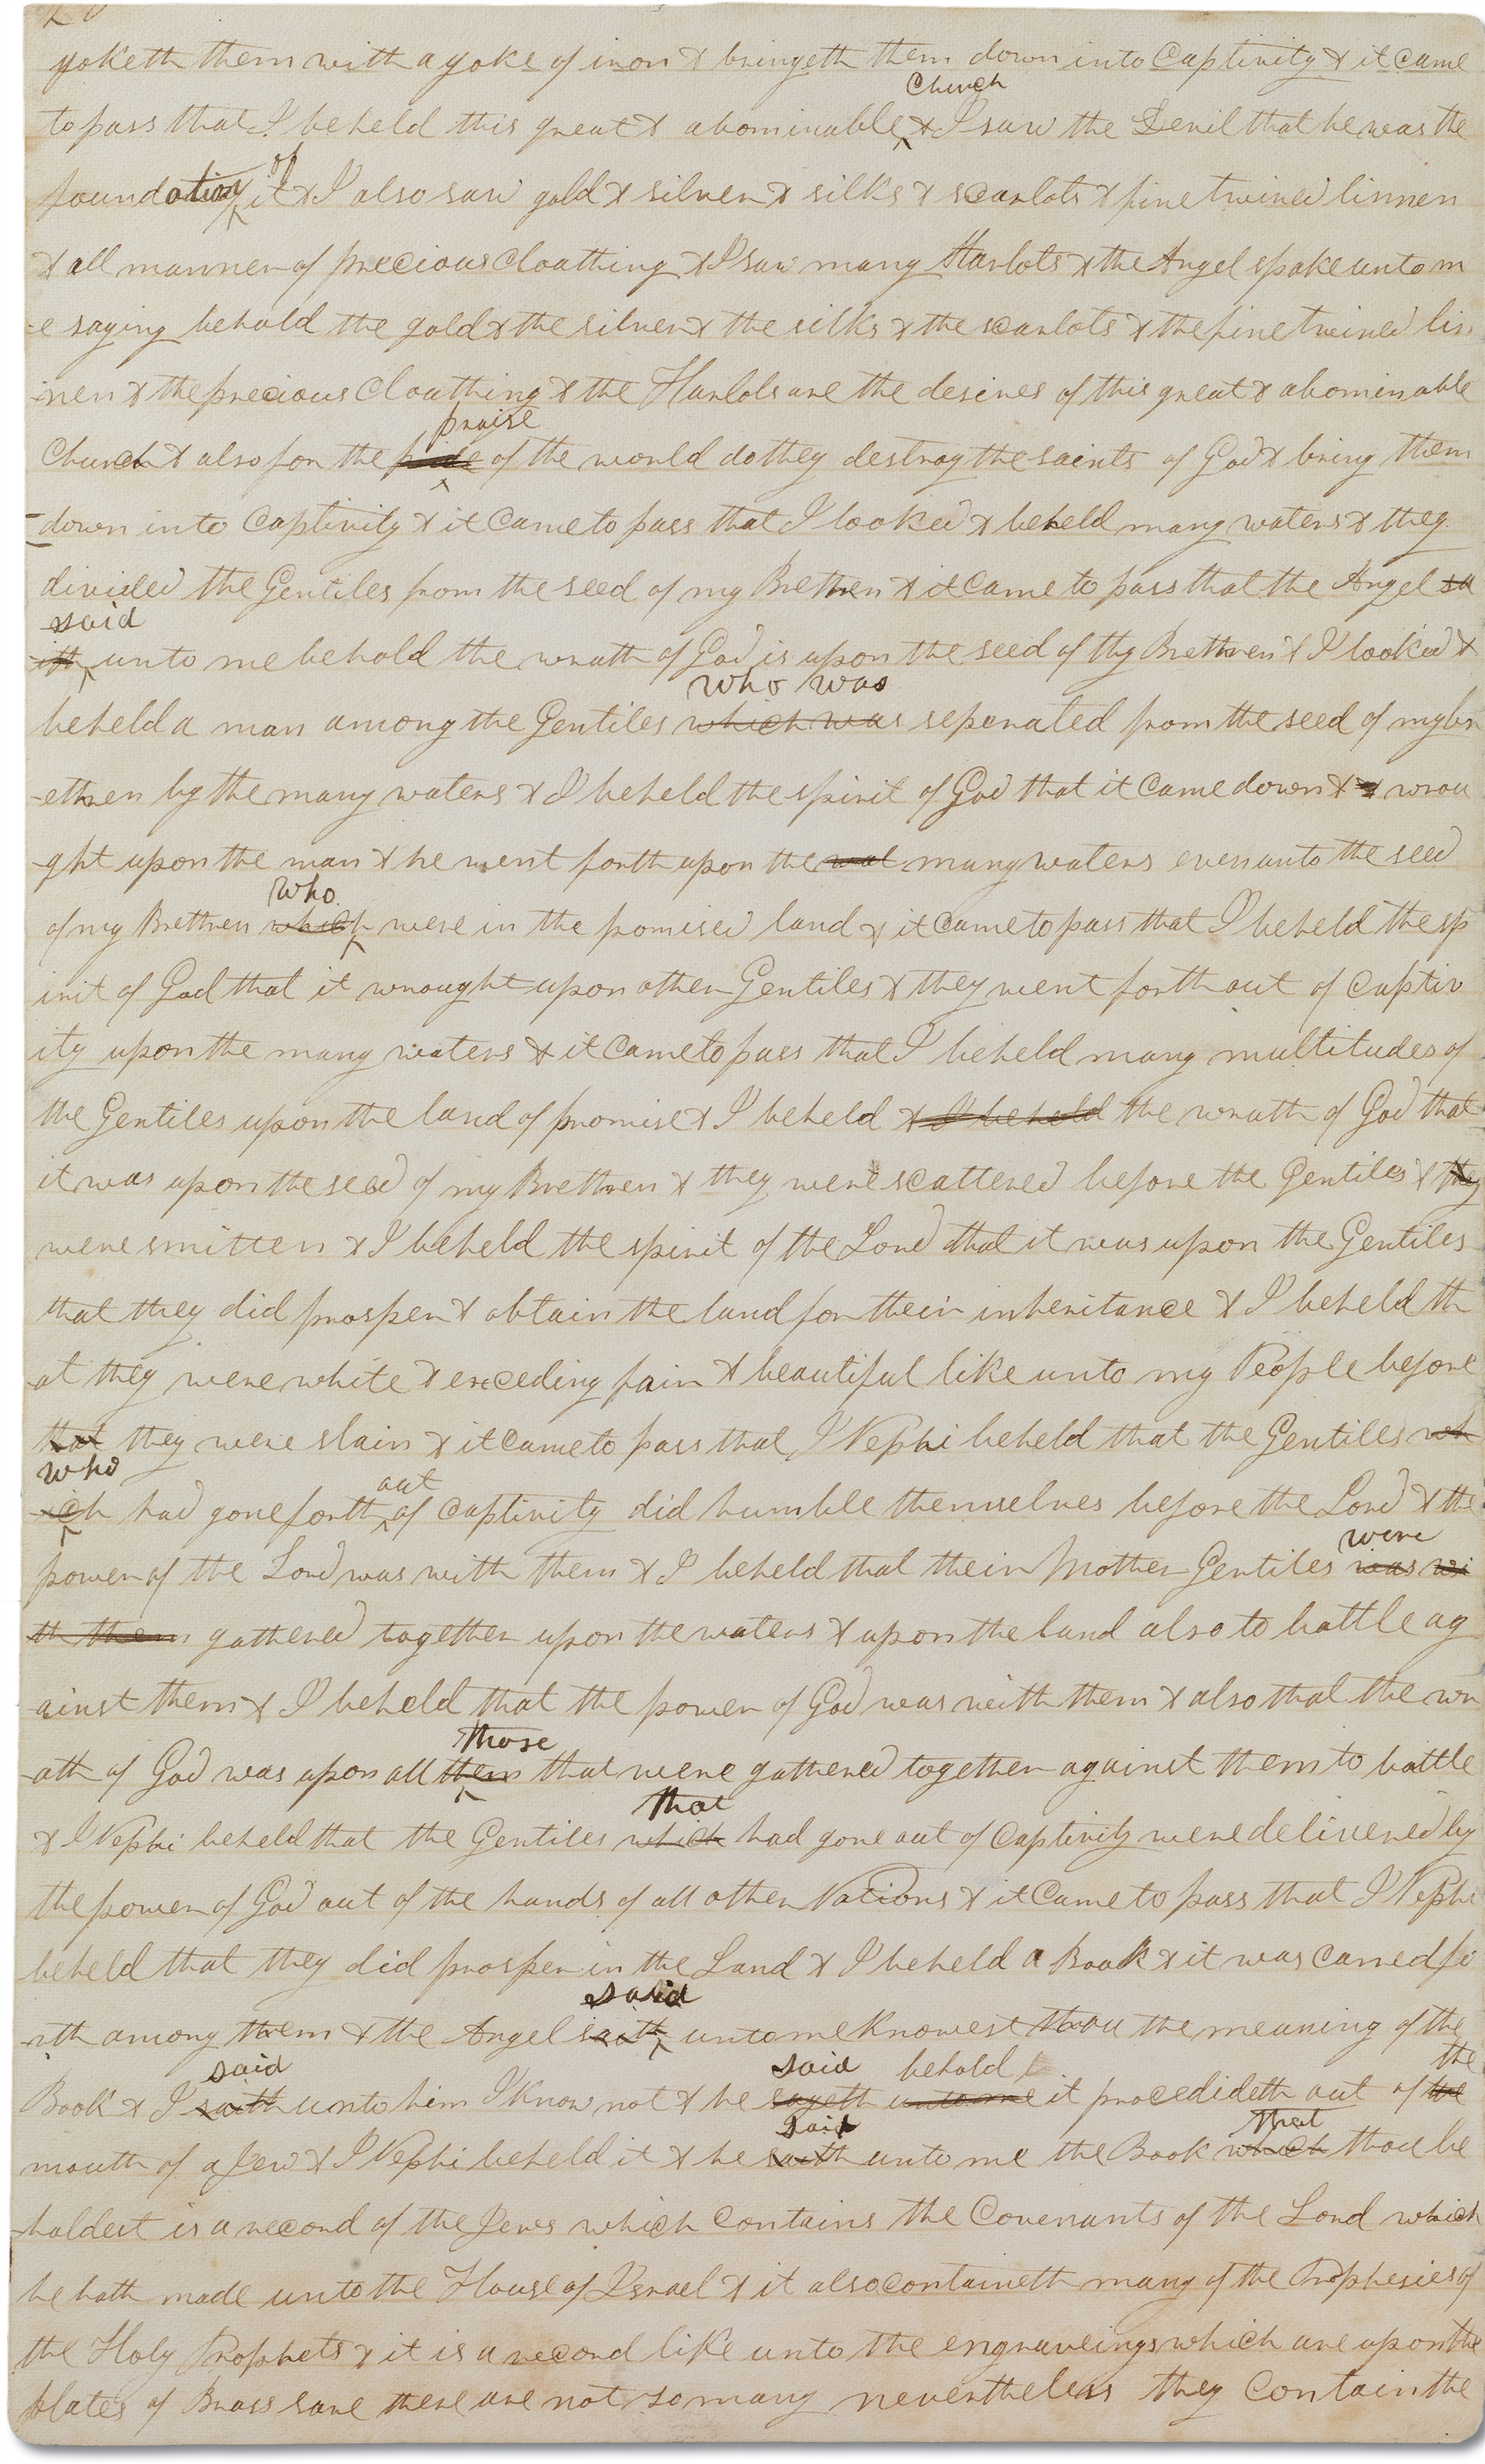 yoketh them with a yoke of iron & bringeth them down into Captivity & it came
Church
to pass that I beheld this great & abominable ^ & I saw the Devil that he was the
of
foundation ^ it & I also saw gold & silver & silks & scarlots & fine twined linnen
& all manner of precious cloathing & I saw many Harlots & the Angel spake unto m
-e saying behold the gold & the silver & the silks & the scarlots & the fine twined lin
-nen & the precious cloathing & the Harlots are the desires of this great & abominable
praise
Church & also for the pride ^ of the world do they destroy the saints of God & bring them
-down into Captivity & it came to pass that I looked & beheld many waters & they
divided the Gentiles from the seed of my Brethren & it came to pass that the Angel sa
said
ith ^ unto me behold the wrath of God is upon the seed of thy Brethren & I looked &
who was
beheld a man among the Gentiles which was seperated from the seed of my br
-ethren by the many waters & I beheld the spirit of God that it came down & & wrou
-ght upon the man & he went forth upon the wat many waters even unto the seed
who
of my Brethren which ^ were in the promised land & it came to pass that I beheld the sp
irit of God that it wrought upon other Gentiles & they went forth out of captiv
ity upon the many waters & it came to pass that I beheld many multitudes of
the Gentiles upon the land of promise & I beheld & I beheld the wrath of God that
it was upon the seed of my Brethren & they were scattered before the Gentiles & they
were smitten & I beheld the spirit of the Lord that it was upon the Gentiles
that they did prosper & obtain the land for their inheritance & I beheld th
-at they were white & exceding fair & beautiful like unto my People before
that they were slain & it came to pass that I Nephi beheld that the Gentiles wh
who out
-ich ^ had gone forth ^ of captivity did humble themselves before the Lord & the
were
power of the Lord was with them & I beheld that their Mother Gentiles was wi
th them gathered together upon the waters & upon the land also to battle ag
ainst them & I beheld that the power of God was with them & also that the wr
those
-ath of God was upon all them ^ that were gathered together against them to battle
that
& I Nephi beheld that the Gentiles which had gone out of captivity were delivered by
the power of God out of the hands of all other Nations & it came to pass that I Nephi
beheld that they did prosper in the Land & I beheld a Book & it was carred fo
said
-rth among them & the Angel saith ^ unto me Knowest thou the meaning of the
said said behold the
Book & I saith unto him I Know not & he sayeth unto me it procedideth out of the
said that
mouth of a Jew & I Nephi beheld it & he saith unto me the Book which thou be
-holdest is a record of the Jews which contains the Covenants of the Lord which
he hath made unto the House of Israel & it also containeth many of the Prophesies of
the Holy Prophets & it is a record like unto the engraveings which are upon the
plates of Brass save there are not so many nevertheless they contain the